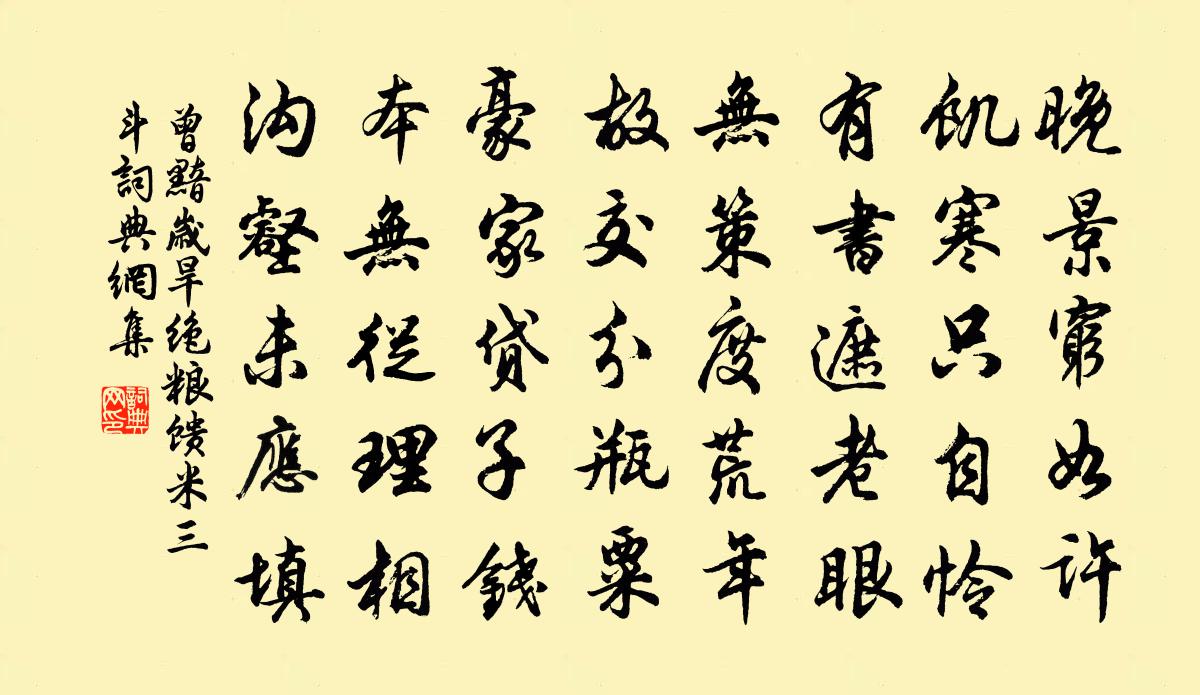 晚景窮如許
飢寒只自怜
有書遮老眼
無策度荒年
故交分瓶粟
豪家貸子錢
本無從理相
沟壑未應填
曾黯歲旱绝粮馈米三
斗詞典網集
詞典
网印